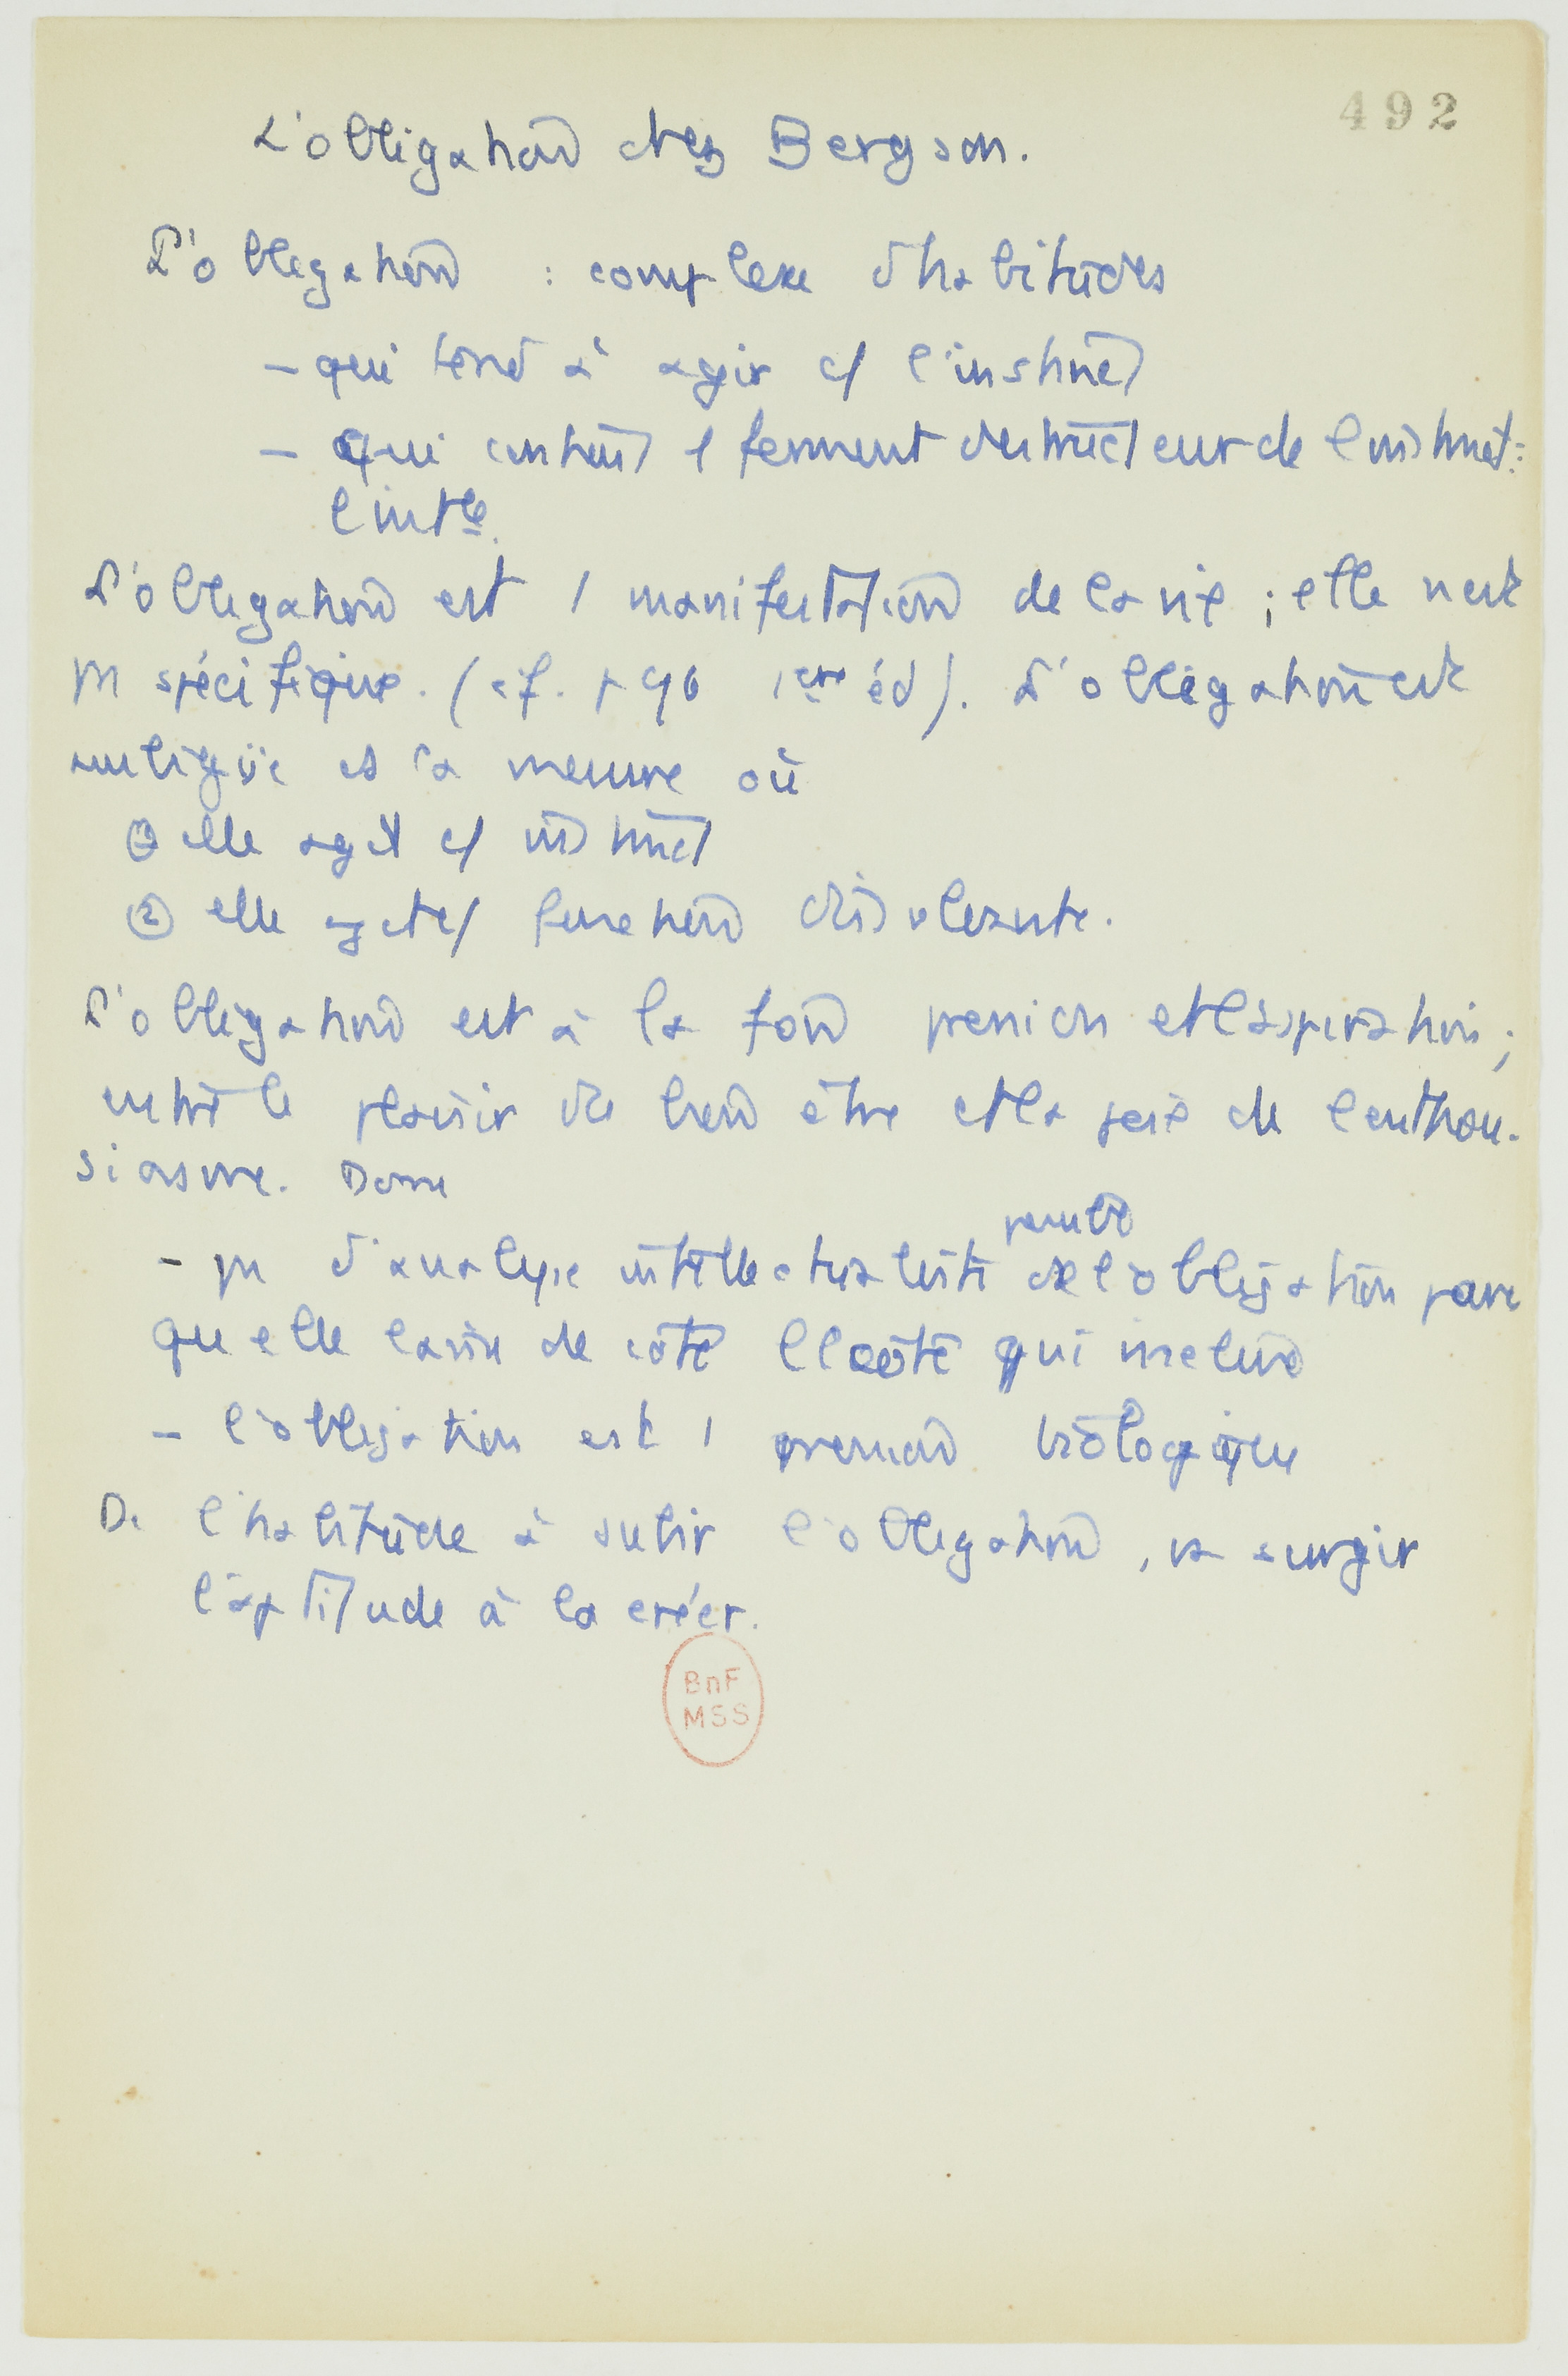 492
L'obligation chez Bergson.
L'obligation : complexe d'habitudes
- qui tend à agir c/ l'instinct
- qui contient 1 ferment destructeur de l'instinct :
l'intce.
L'obligation est 1 manifestation de la vie ; elle n'est
pas spécifique. (cf. p 96 1ere éd). L'obligation est
ambiguë ds la mesure où
① elle agit c/ instinct
② elle agit c/ fonction dissolvante.
L'obligation est à la fois pression et l'aspiration ;
entre le plaisir du bien être et la joie de l'enthou-
siasme. Donc
possible
- pas d'analyse intellectualiste de l'obligation parce
qu'elle laisse de côté l'élasticité qui
- l'obligation est 1 pression biologique
De l'habitude à subir l'obligation, va surgir
l'aptitude à la créer.
BnF
MSS